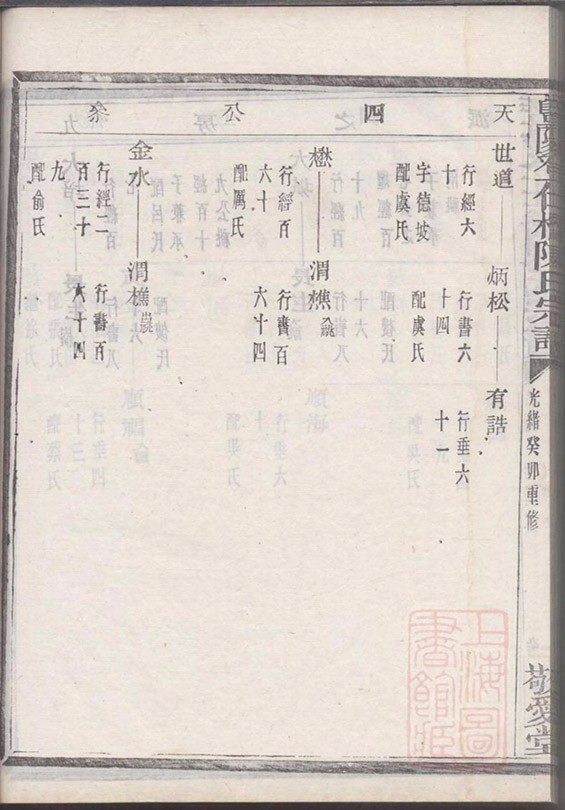 陳氏宗譜
光緒癸卯重修
敬愛堂
天 四 公 叅
世道 炳松 有誥
行經六
十
字德坡
配虞氏
行書六
十四
配虞氏
行垂六
十一
懋 渭樵
行經百
六十
配厲氏
行書百
六十四
金水 渭樵
行經二
百三十
九
配俞氏
行書百
六十四
上海圖
書館藏